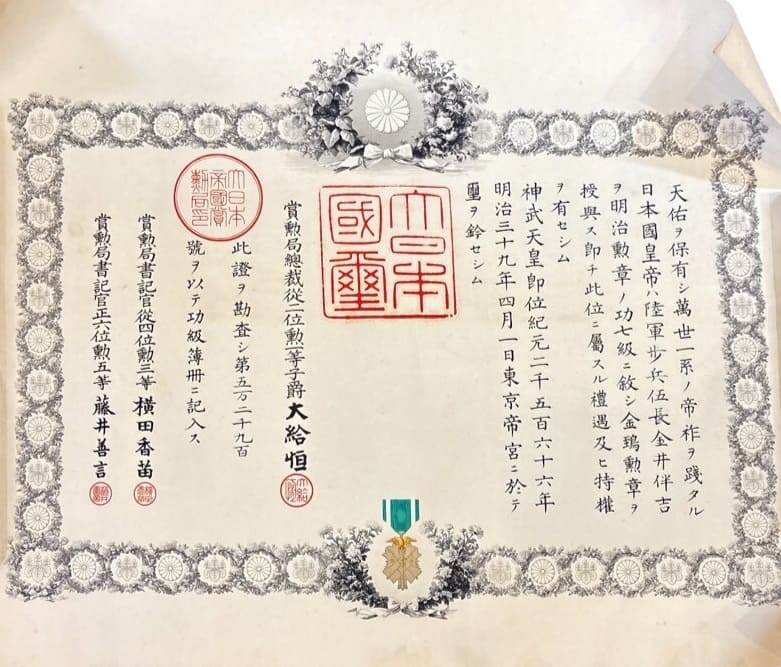 天佑ヲ保有シ萬世一系ノ帝祚ヲ踐タル
日本國皇帝ハ陸軍歩兵伍長金井伴吉
ヲ明治勲章ノ功七級ニ敘シ金鵄勲章ヲ
授與ス即チ此位ニ屬スル禮遇及ヒ特權
ヲ有セシム
神武天皇即位紀元二千五百六十六年
明治三十九年四月一日東京帝宮ニ於テ
璽ヲ鈐セシム
大日本
國璽
賞勲局總裁從二位勲一等子爵大給恒
大日本
帝國賞
勲局印
此證ヲ勘査シ第五万二千九百
號ヲ以テ功級簿冊ニ記入ス
賞勲局書記官從四位勲三等横田香苗
賞勲局書記官正六位勲五等藤井善言